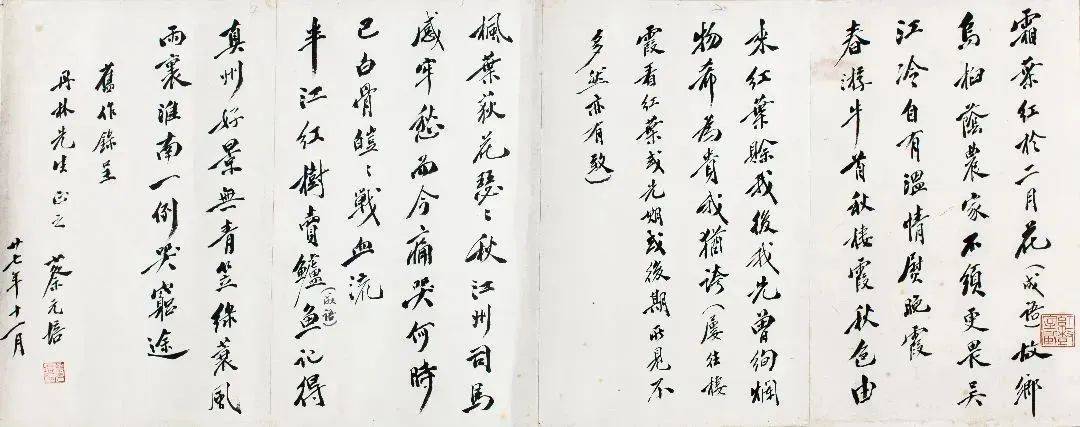 霜葉紅於二月花（成語）故鄉
烏桕蔭農家不須更畏吳
江冷自有溫情熨晚霞
春游牛首秋棲霞秋色由
来紅葉賒我後我先曾絢爛
物希為貴或猶誇（屢往棲
霞看紅葉或先期或後期所見不
多然亦有致）
楓葉荻花瑟〻秋江州司馬
感牢愁而今痛哭何時
已白骨皚〻戰血流
半江紅樹賣鱸魚（成語）記得
真州好景無青笠綠蓑風
雨裏淮南一例哭窮途
舊作錄呈
丹林先生正之 蔡元培
廿七年十一月